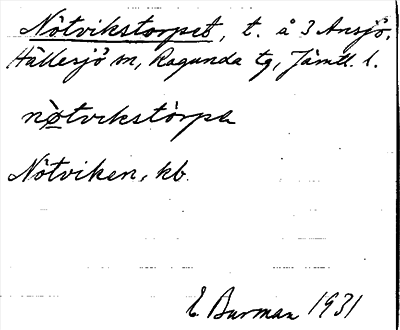 Nötvikstorpet, t. å 3 Ansjö,
Hällesjö sn, Ragunda tg, Jämtl. l.
nø̀tvikstòrpə
Nötviken, kb.
E Burman 1931